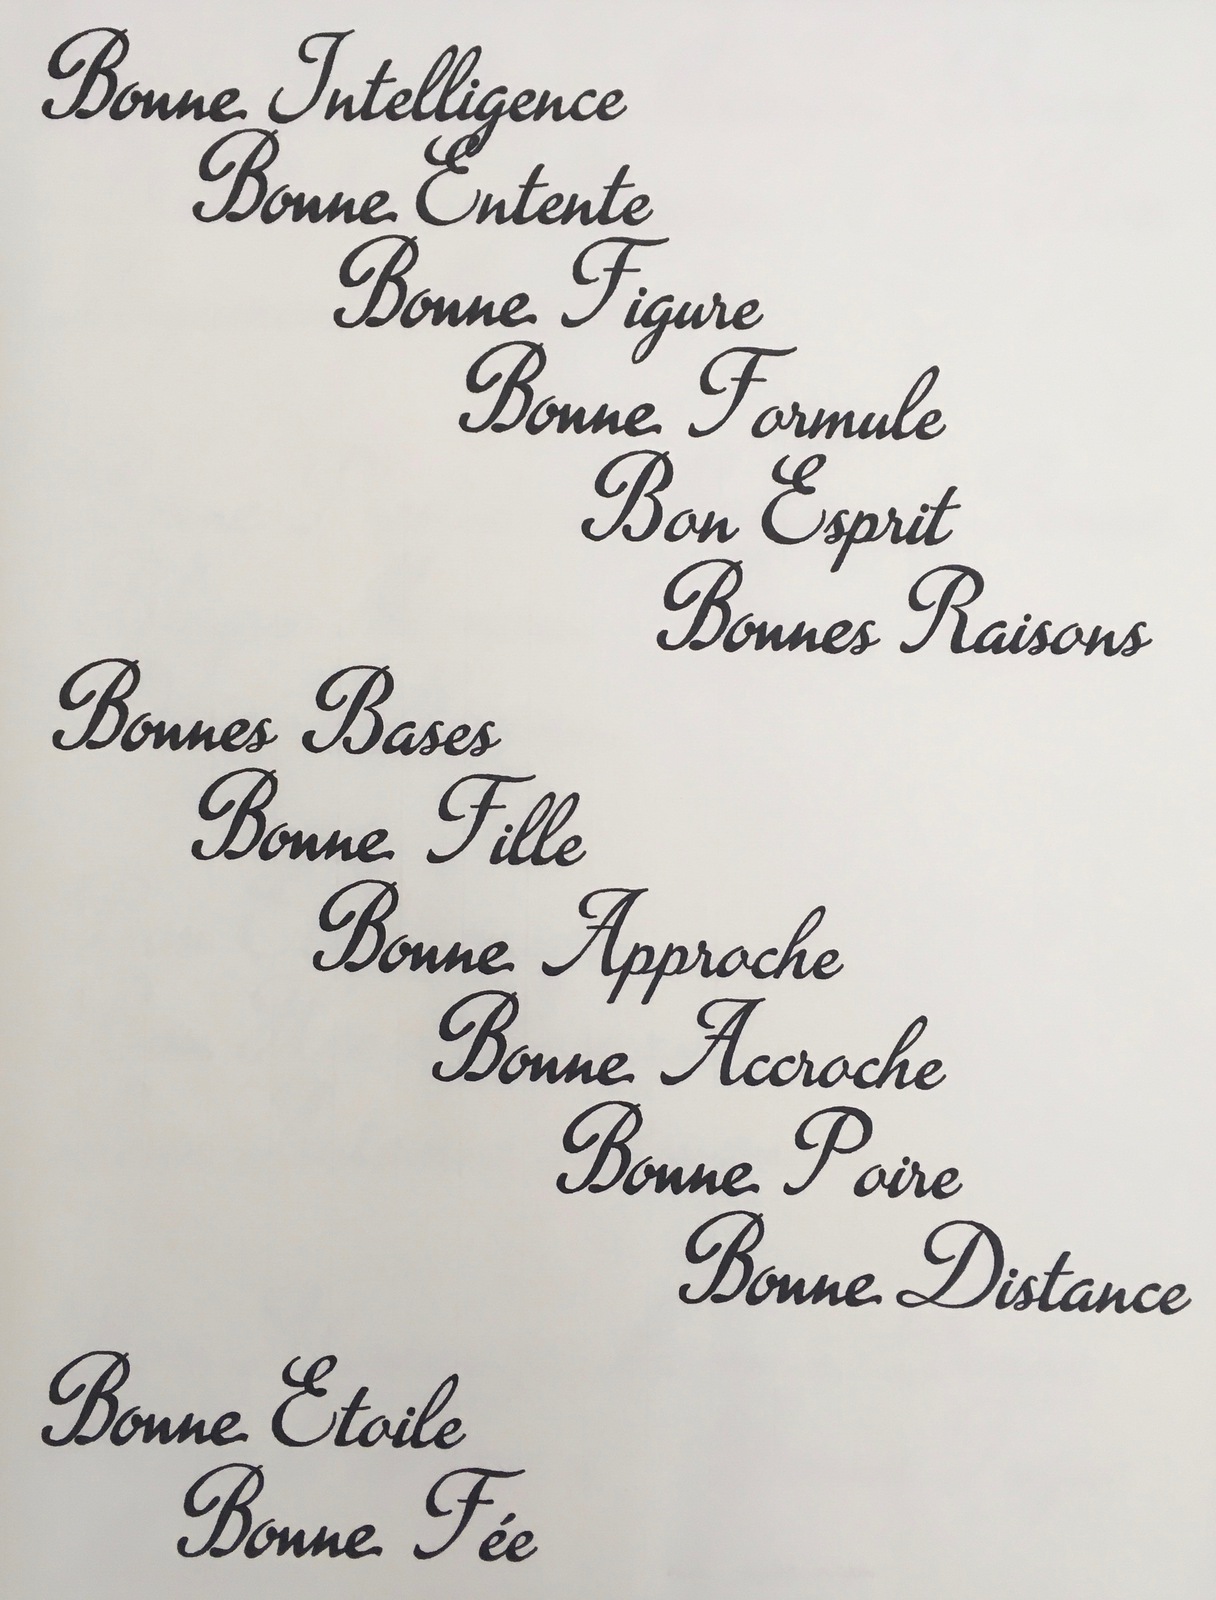 Bonne Intelligence
Bonne Entente
Bonne Figure
Bonne Formule
Bon Esprit
Bonnes Raisons
Bonnes Bases
Bonne Fille
Bonne Approche
Bonne Accroche
Bonne Poire
Bonne Distance
Bonne Etoile
Bonne Fée